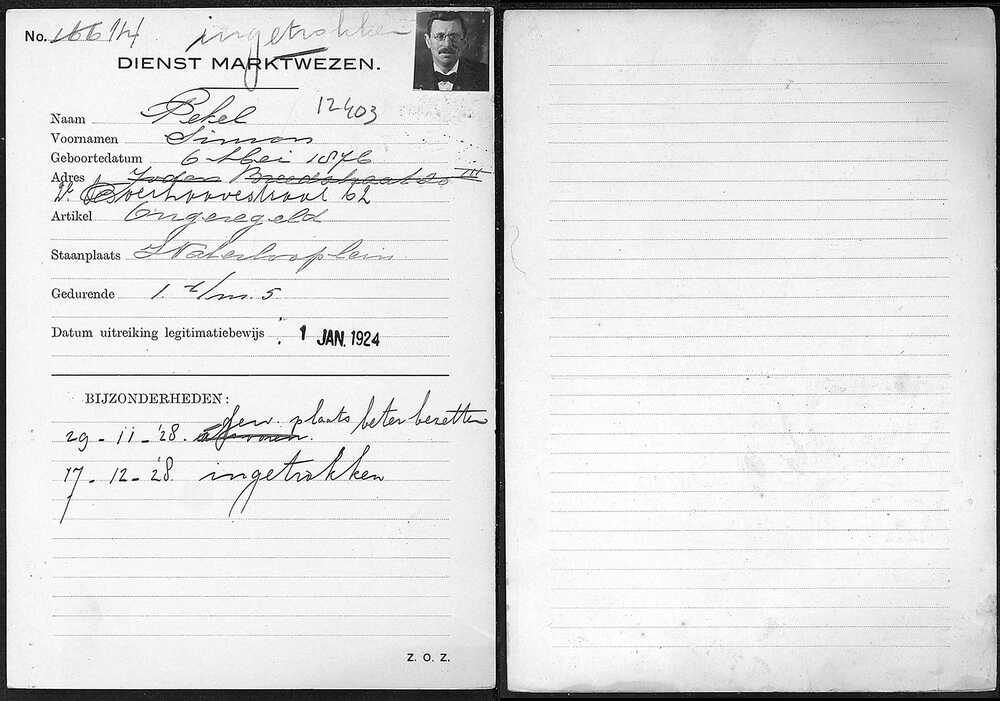 No. 16614 ingetrokken
DIENST MARKTWEZEN.
12403
Naam Pekel
Voornamen Simon
Geboortedatum 6 Mei 1876
Adres Joden Breedstraat 20 III
Artikel Ongeregeld
Staanplaats Waterlooplein
Gedurende 1 t/m. 5
Datum uitreiking legitimatiebewijs : 1 JAN. 1924
BIJZONDERHEDEN:
29-11-'28. gew. plaats beter bezetten
17-12-'28. ingetrokken
Z. O. Z.